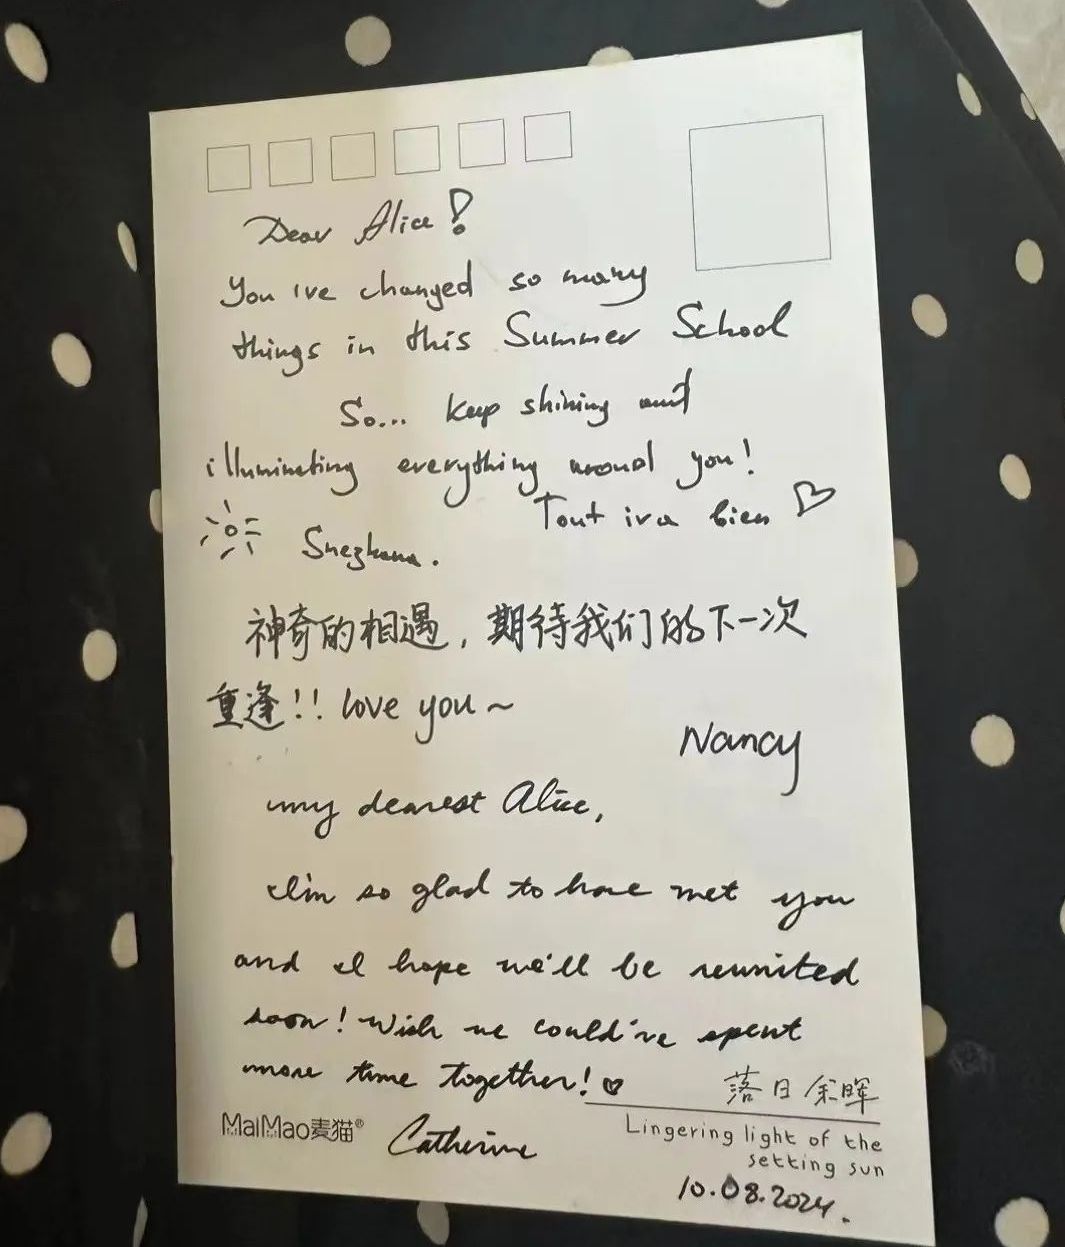 Dear Alice!
You 've changed so many
things in this Summer School
So... keep shining and
illuminating everything around you!
Tout ira bien ♡
Snezhana.
神奇的相遇，期待我们的下一次
重逢!! love you~
Nancy
my dearest Alice,
I'm so glad to have met you
and I hope we'll be reunited
soon! Wish we could've spent
more time together! ♡
落日余晖
MaiMao麦猫®
Catherine
Lingering light of the
setting sun
10.08.2024.